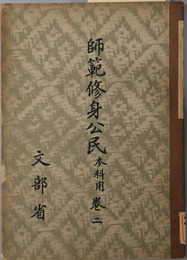 師範修身公民本科用巻二
文部省